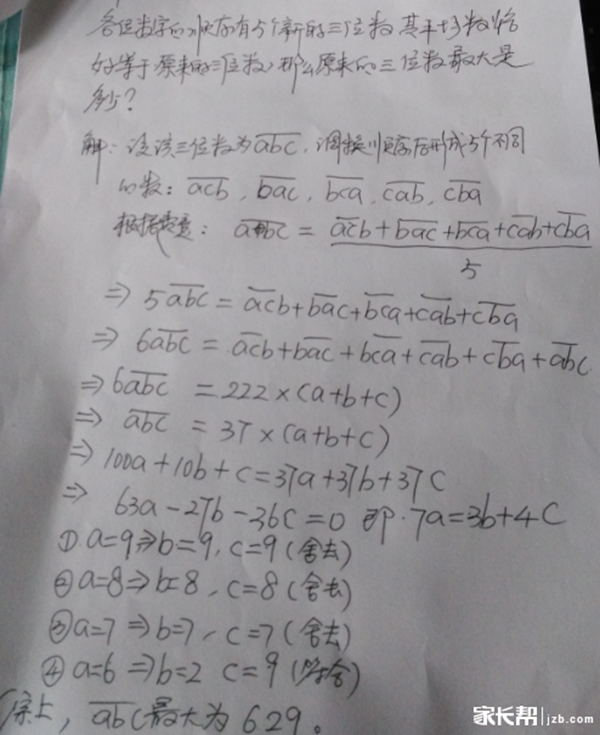 各位数字的顺序有5个新的三位数其平均数恰
好等于原来的三位数,那么原来的三位数最大是
多少?
解:设该三位数为abc,调换顺序后形成5个不同
的数:acb,bac,bca,cab,cba
根据题意:abc = acb+bac+bca+cab+cba
5
⇒ 5abc = acb+bac+bca+cab+cba
⇒ 6abc = acb+bac+bca+cab+cba+abc
⇒ 6abc = 222×(a+b+c)
⇒ abc = 37×(a+b+c)
⇒ 100a+10b+c=37a+37b+37c
⇒ 63a-27b-36c=0 即·7a=3b+4c
① a=9⇒b=9,c=9(舍去)
② a=8⇒b=8,c=8(舍去)
③ a=7⇒b=7,c=7(舍去)
④ a=6⇒b=2 c=9(符合)
综上,abc最大为629。
家长帮 jzb.com